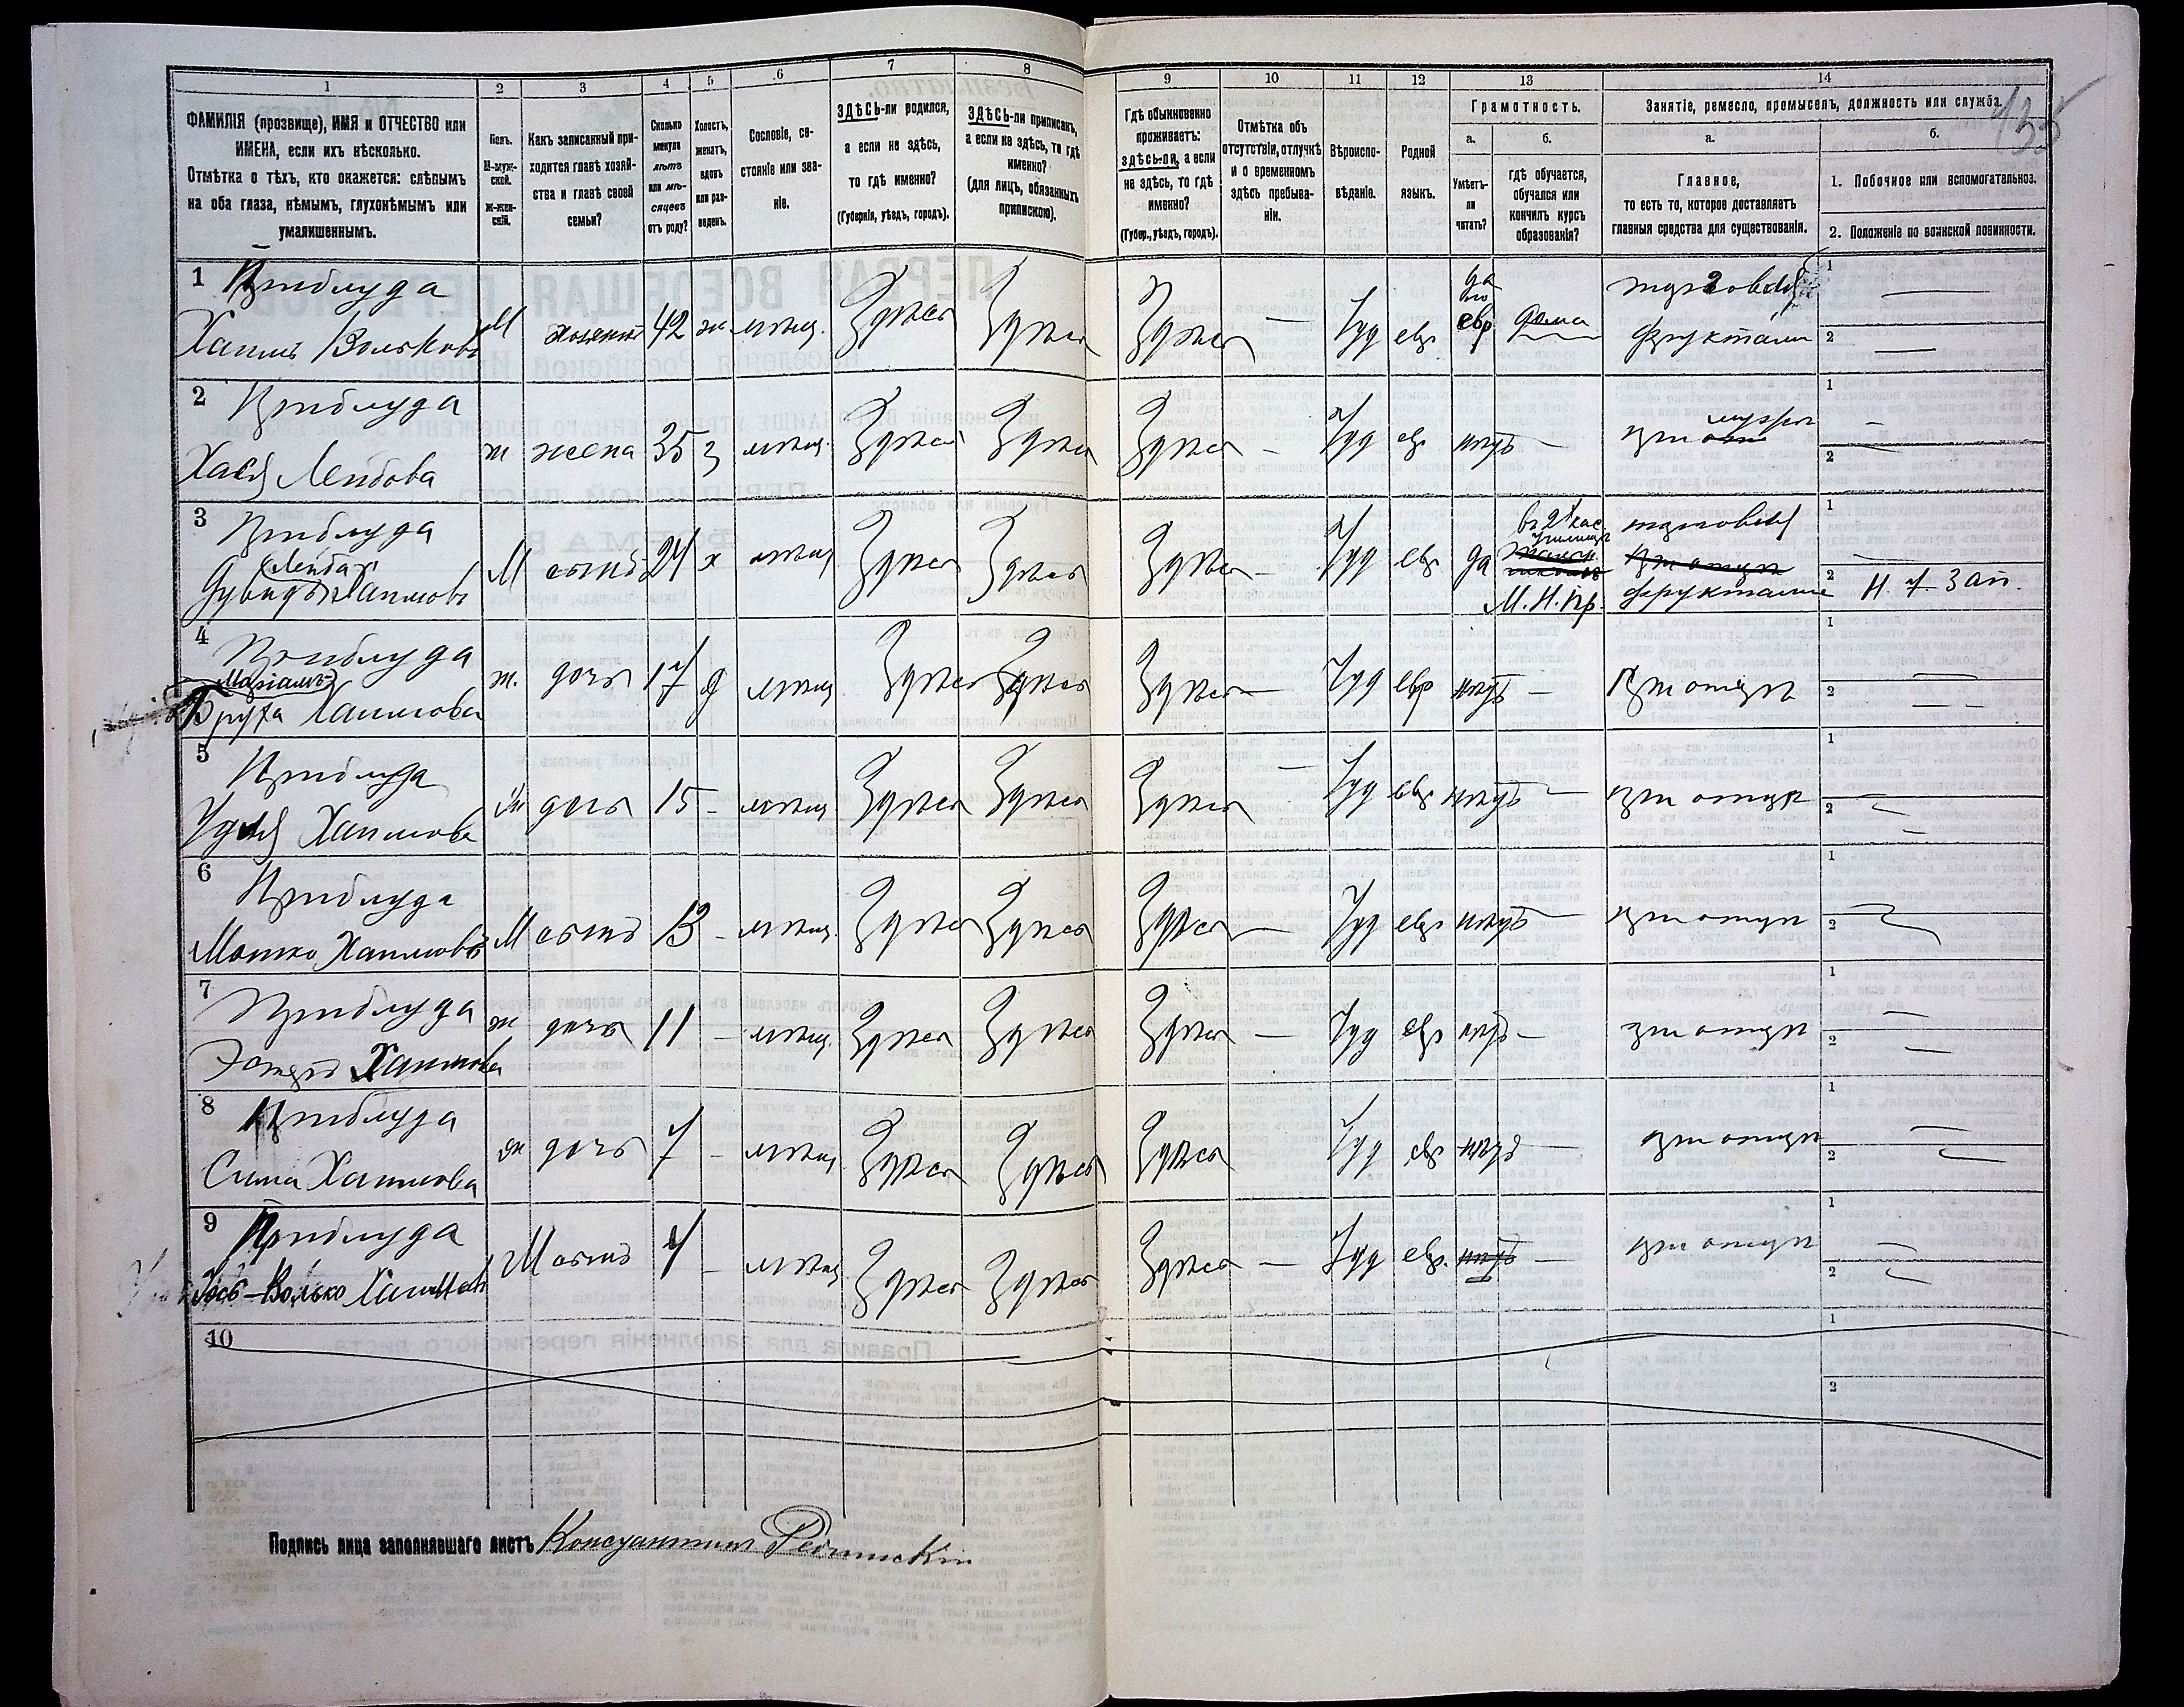 1 2 3 4 5 6 7 8 9 10 11 12 13 14
ФАМИЛІЯ (прозвище), ИМЯ и ОТЧЕСТВО или
ИМЕНА, если ихъ нѣсколько.
Отмѣтка о тѣхъ, кто окажется: слѣпымъ
на оба глаза, нѣмымъ, глухонѣмымъ или
умалишеннымъ.
Полъ.
М-муж-
ской.
Ж-жен-
скій.
Какъ записанный при-
ходится главѣ хозяй-
ства и главѣ своей
семьи?
Сколько
минуло
лѣтъ
или мѣ-
сяцевъ
отъ роду?
Холостъ,
женатъ,
вдовъ
или раз-
веденъ.
Сословіе, со-
стояніе или зва-
ніе.
ЗДѢСЬ-ли родился,
а если не здѣсь,
то гдѣ именно?
(Губернія, уѣздъ, городъ).
ЗДѢСЬ-ли приписанъ,
а если не здѣсь, то гдѣ
именно?
(для лицъ, обязанныхъ
припискою).
Гдѣ обыкновенно
проживаетъ:
здѣсь-ли, а если
не здѣсь, то гдѣ
именно?
(Губер., уѣздъ, городъ).
Отмѣтка объ
отсутствіи, отлучкѣ
и о временномъ
здѣсь пребыва-
ніи.
Вѣроиспо-
вѣданіе.
Родной
языкъ.
Грамотность.
а.
Умѣетъ-
ли
читать?
б.
гдѣ обучается,
обучался или
кончилъ курсъ
образованія?
Занятіе, ремесло, промыселъ, должность или служба.
135
а.
Главное,
то есть то, которое доставляетъ
главныя средства для существованія.
б.
1. Побочное или вспомогательное.
2. Положеніе по воинской повинности.
1 Приблуда
Хаимъ Вольковъ М хозяинъ 42 ж мѣщ. Здѣсь Здѣсь Здѣсь — Іуд евр да по евр дома торговля фруктами 1 — 2 —
2 Приблуда
Хася Лейбова ж жена 35 з мѣщ. Здѣсь Здѣсь Здѣсь — Іуд евр нѣтъ — при мужѣ 1 — 2
3 Приблуда
Лейба
Дувидъ Хаимовъ М сынъ 24 х мѣщ Здѣсь Здѣсь Здѣсь — Іуд евр да въ 2х клас. училищѣ М. Н. Пр. торговля при отцѣ фруктами 1 — 2 Н. ч. Зап.
4 Приблуда
Маріамъ-
Бруха Хаимова ж. дочь 17 д мѣщ Здѣсь Здѣсь Здѣсь — Іуд евр нѣтъ — При отцѣ 1 — 2 —
5 Приблуда
Удля Хаимова ж дочь 15 — мѣщ Здѣсь Здѣсь Здѣсь — Іуд евр нѣтъ — при отцѣ 1 2 —
6 Приблуда
Мошко Хаимовъ М сынъ 13 — мѣщ. Здѣсь Здѣсь Здѣсь — Іуд евр нѣтъ — при отцѣ 1 2
7 Приблуда
Эстеръ Хаимова ж дочь 11 — мѣщ. Здѣсь Здѣсь Здѣсь — Іуд евр нѣтъ — при отцѣ 1 — 2 —
8 Приблуда
Сима Хаимова ж дочь 7 — мѣщ Здѣсь Здѣсь Здѣсь Іуд евр нѣтъ — при отцѣ 1 — 2
9 Приблуда
Волько Хаимовъ М сынъ 4 — мѣщ Здѣсь Здѣсь Здѣсь — Іуд евр. нѣтъ — при отцѣ 1 — 2
10 1 2
Подпись лица заполнявшаго листъ